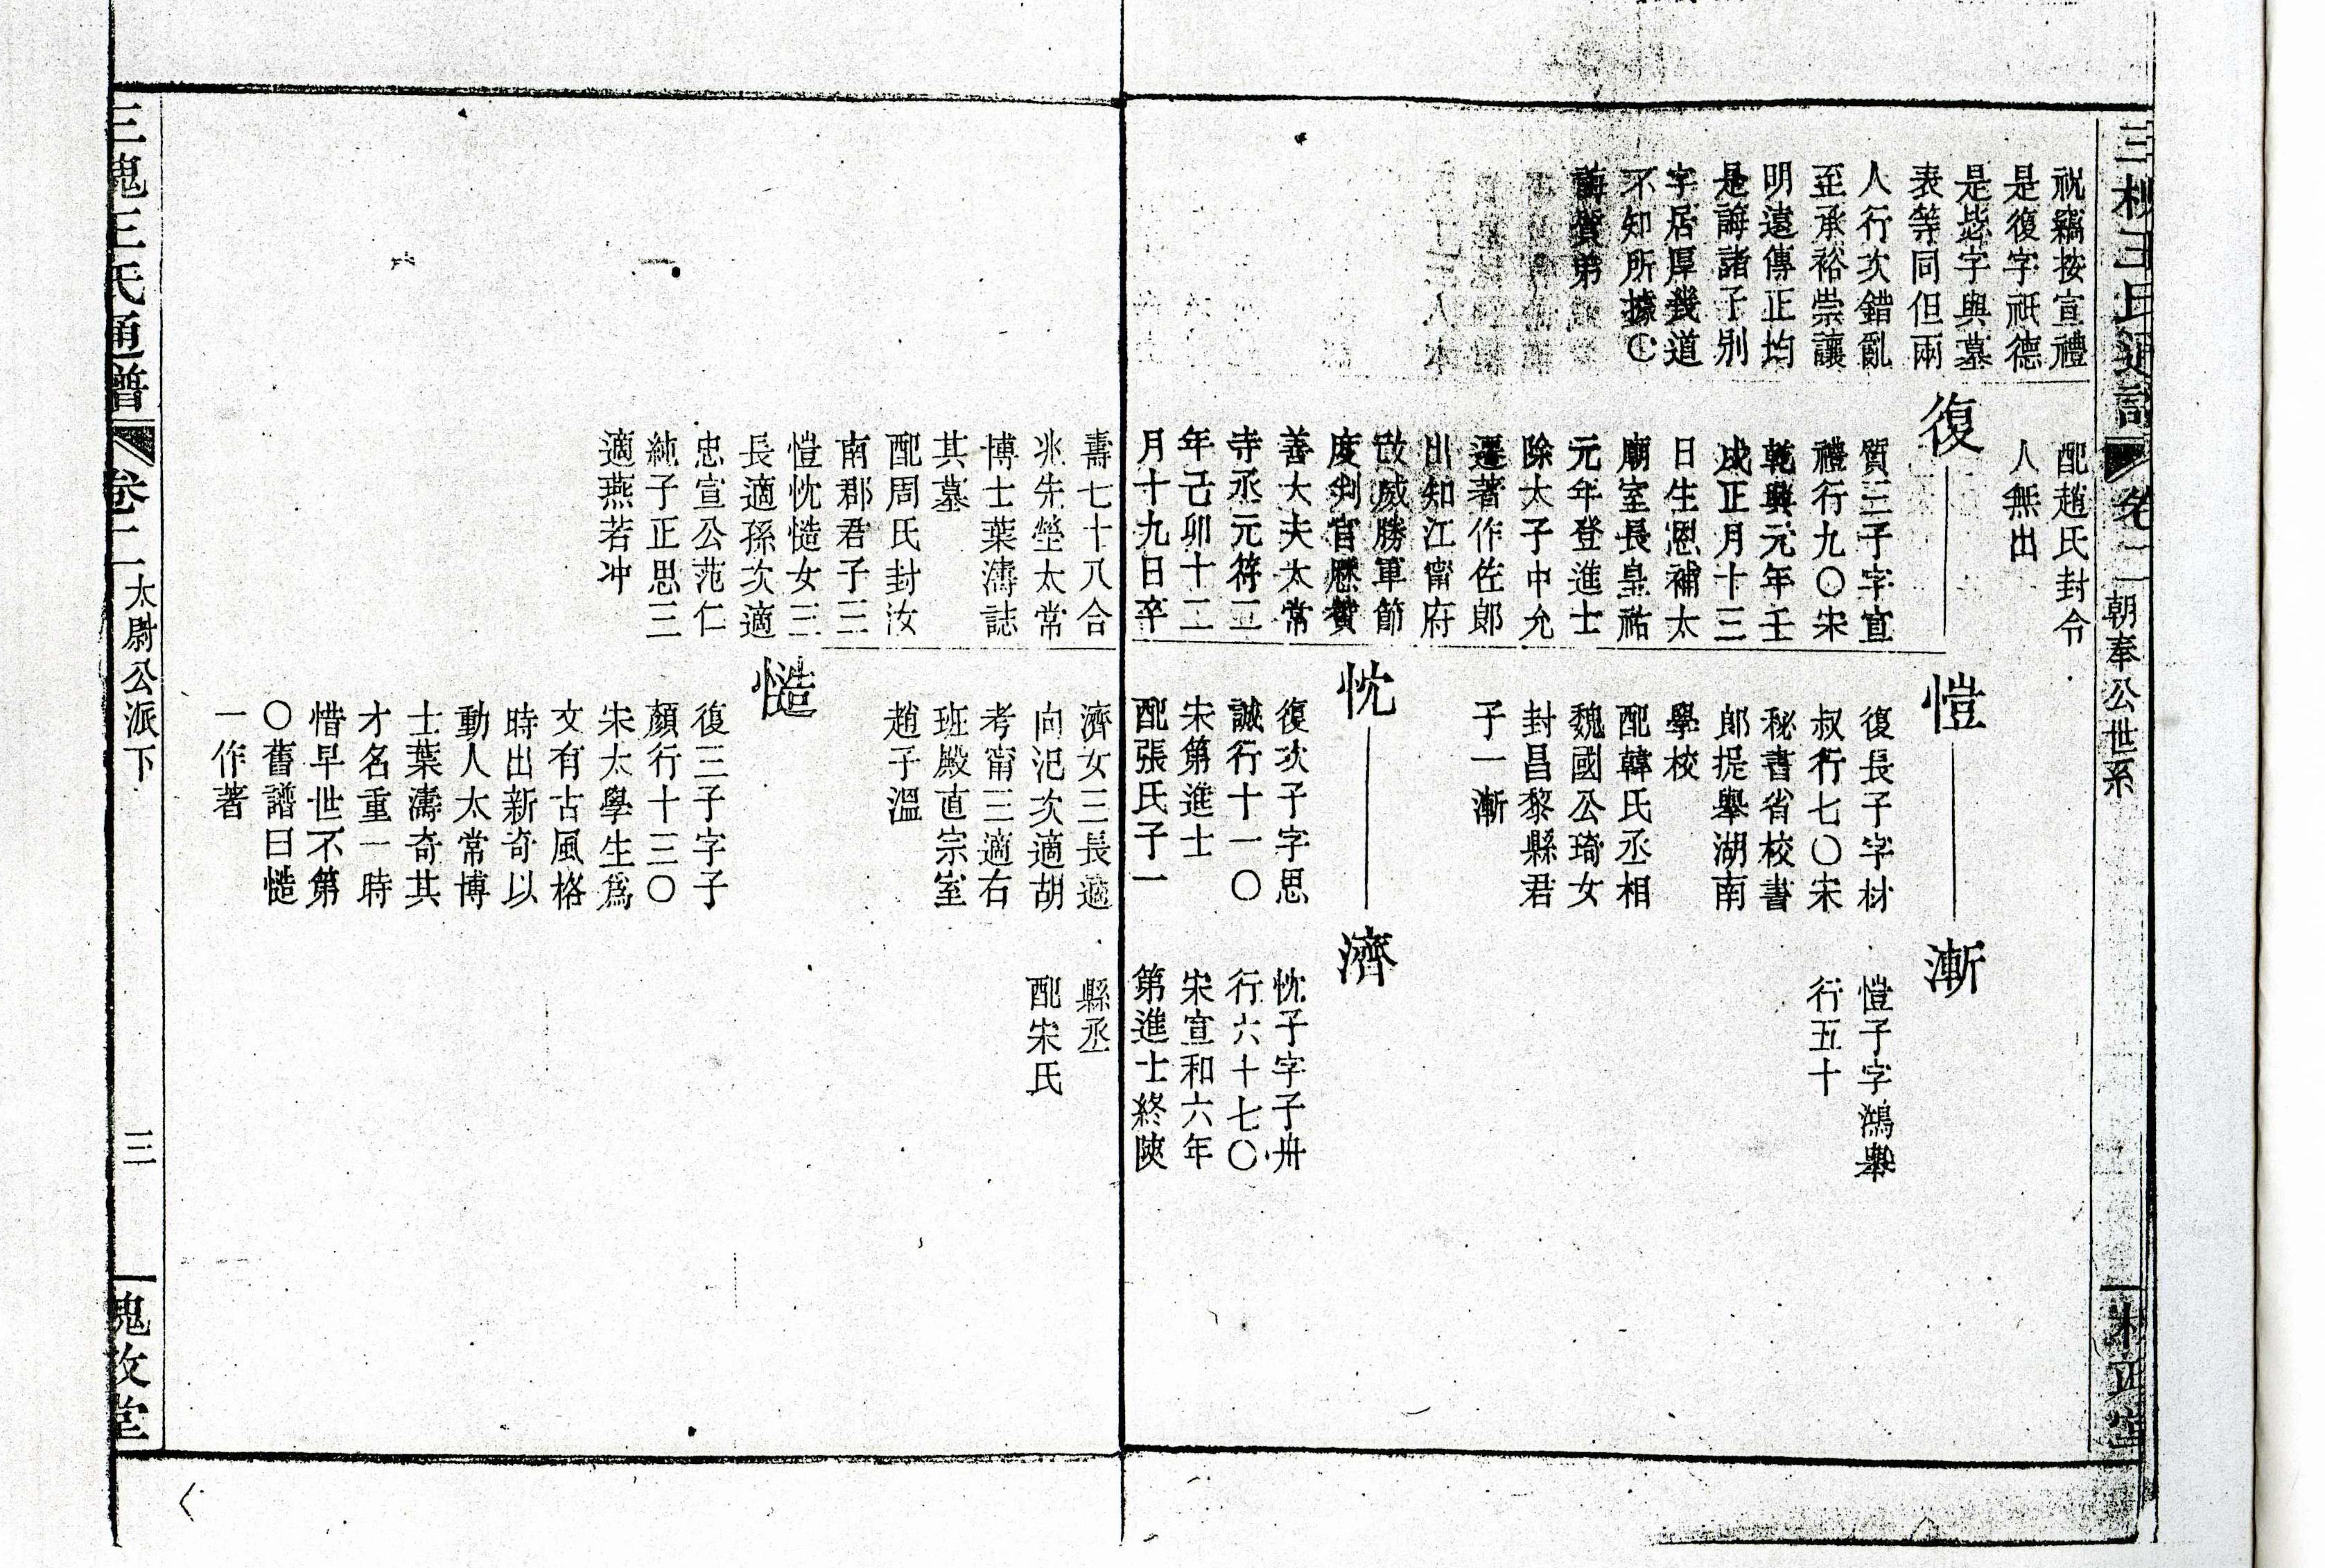 三槐王氏通譜
卷二
朝奉公世系
祝竊按宣禮
是復字祇德
是毖字與墓
表等同但兩
人行次錯亂
至承裕崇讓
明遠傳正均
是誨諸子別
字居厚義道
不知所據
誨質弟
配趙氏封令
人無出
復
質三子字宣
禮行九〇宋
乾興元年壬
戌正月十三
日生恩補太
廟室長皇祐
元年登進士
除太子中允
遷著作佐郎
出知江甯府
改威勝軍節
度判官歷贊
善大夫太常
寺丞元符二
年己卯十二
月十九日卒
愷
復長子字材
叔行七〇宋
秘書省校書
郎提舉湖南
學校
配韓氏丞相
魏國公琦女
封昌黎縣君
子一漸
忱
復次子字思
誠行十一〇
宋第進士
配張氏子一
漸
愷子字鴻舉
行五十
濟
忱子字子冊
行六十七〇
宋宣和六年
第進士終陝
壽七十八合
兆先塋太常
博士葉濤誌
其墓
配周氏封汝
南郡君子三
愷忱慥女三
長適孫次適
忠宣公范仁
純子正思三
適燕若冲
濟女三長適
向汜次適胡
考甯三適右
班殿直宗室
趙子溫
慥
復三子字子
顏行十三〇
宋太學生爲
文有古風格
時出新奇以
動人太常博
士葉濤奇其
才名重一時
惜早世不第
〇舊譜曰慥
一作著
縣丞
配宋氏
三槐王氏通譜
卷二
太尉公派下
三
槐政堂